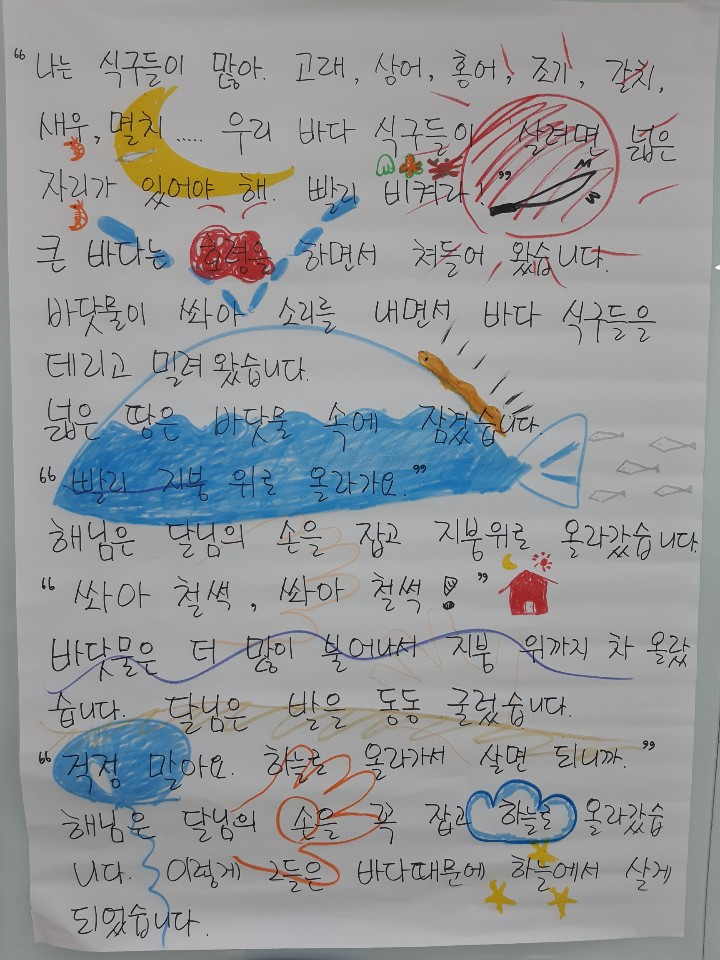 “나는 식구들이 많아. 고래, 상어, 홍어, 조기, 갈치,
새우, 멸치..... 우리 바다 식구들이 살려면 넓은
자리가 있어야 해. 빨리 비켜라!”
큰 바다는 호령을 하면서 쳐들어 왔습니다.
바닷물이 쏴아 소리를 내면서 바다 식구들을
데리고 밀려왔습니다.
넓은 땅은 바닷물 속에 잠겼습니다.
“빨리 지붕 위로 올라가요.”
해님은 달님의 손을 잡고 지붕위로 올라갔습니다.
“쏴아 철썩, 쏴아 철썩!”
바닷물은 더 많이 불어나서 지붕 위까지 차 올랐
습니다. 달님은 발을 동동 굴렀습니다.
“걱정 말아요. 하늘로 올라가서 살면 되니까.”
해님은 달님의 손을 꼭 잡고 하늘로 올라갔습
니다. 이렇게 그들은 바다때문에 하늘에서 살게
되었습니다.